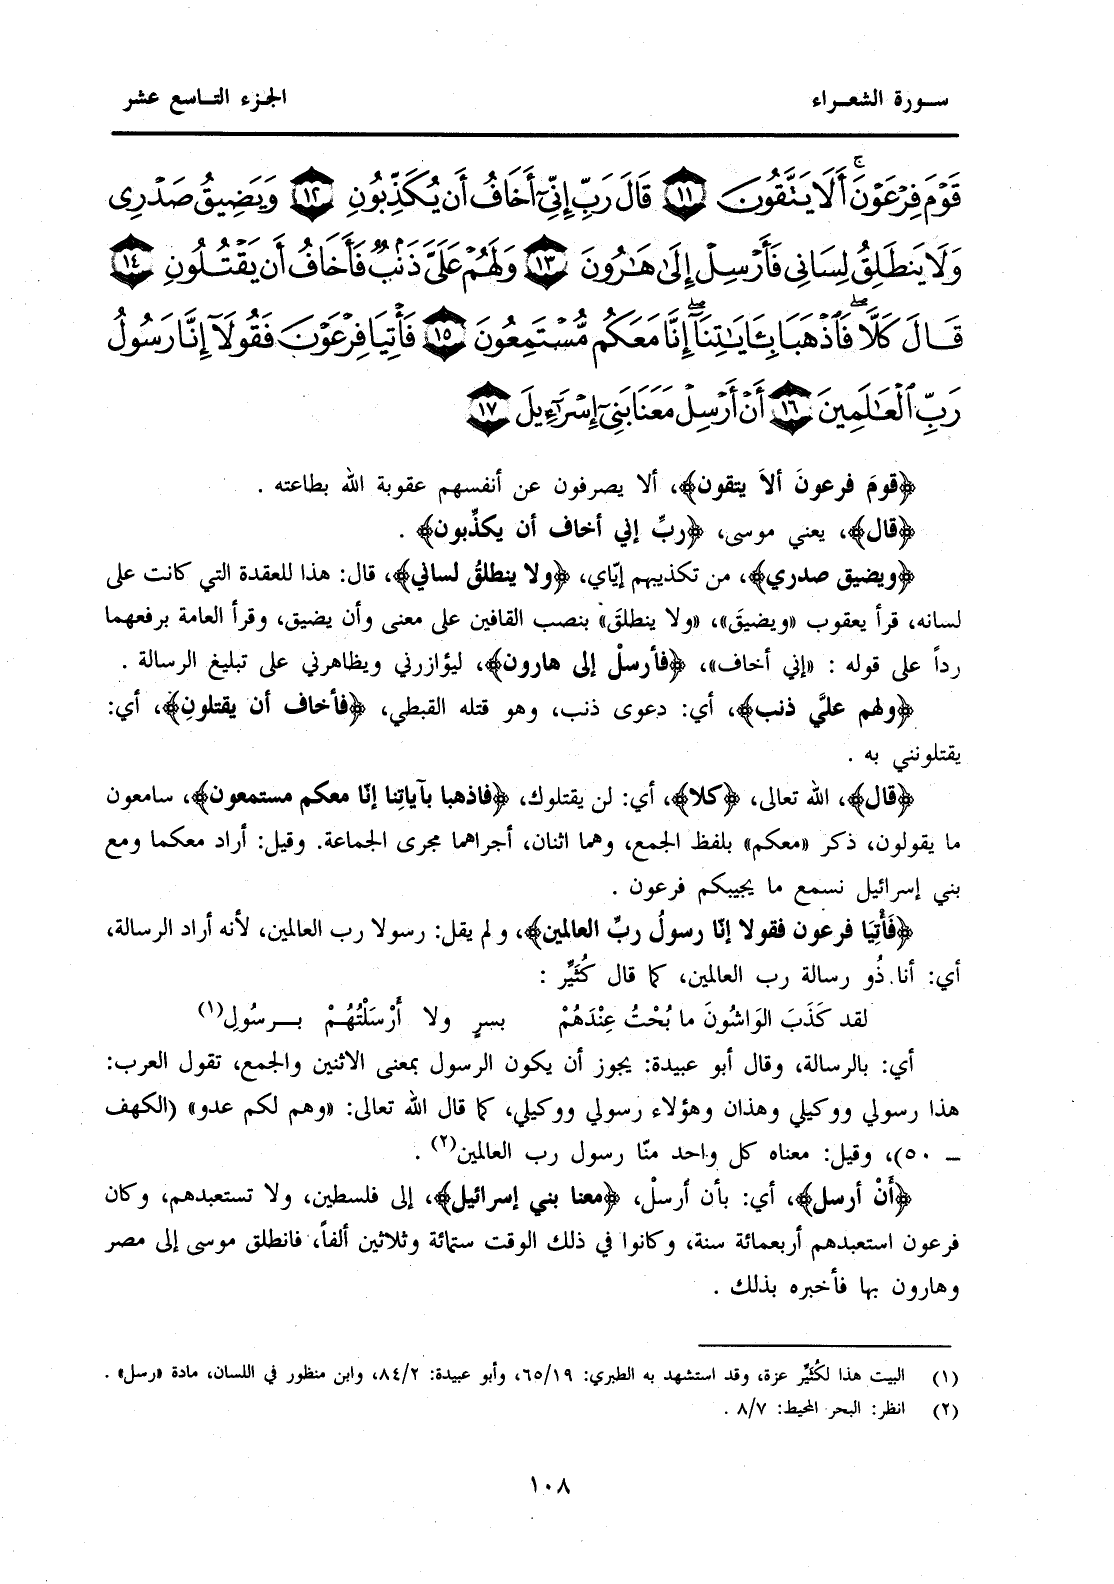 سورة الشعراء
الجزء التاسع عشر
قَوْمَ فِرْعَوْنَ ۚ أَلَا يَتَّقُونَ ١١ قَالَ رَبِّ إِنِّىٓ أَخَافُ أَن يُكَذِّبُونِ ١٢ وَيَضِيقُ صَدْرِى
وَلَا يَنطَلِقُ لِسَانِى فَأَرْسِلْ إِلَىٰ هَٰرُونَ ١٣ وَلَهُمْ عَلَىَّ ذَنۢبٌ فَأَخَافُ أَن يَقْتُلُونِ ١٤
قَالَ كَلَّا ۖ فَٱذْهَبَا بِـَٔايَٰتِنَآ ۖ إِنَّا مَعَكُم مُّسْتَمِعُونَ ١٥ فَأْتِيَا فِرْعَوْنَ فَقُولَآ إِنَّا رَسُولُ
رَبِّ ٱلْعَٰلَمِينَ ١٦ أَنْ أَرْسِلْ مَعَنَا بَنِىٓ إِسْرَٰٓءِيلَ ١٧
﴿قومَ فرعونَ ألاَ يتقون﴾، ألا يصرفون عن أنفسهم عقوبة الله بطاعته .
﴿قال﴾، يعني موسى، ﴿ربِّ إني أخاف أن يكذِّبون﴾ .
﴿ويضيق صدري﴾، من تكذيبهم إيّاي، ﴿ولا ينطلقُ لساني﴾، قال: هذا للعقدة التي كانت على
لسانه، قرأ يعقوب «ويضيقَ»، «ولا ينطلقَ» بنصب القافين على معنى وأن يضيق، وقرأ العامة برفعهما
رداً على قوله : «إني أخاف»، ﴿فأرسلْ إلى هارون﴾، ليؤازرني ويظاهرني على تبليغ الرسالة .
﴿ولهم عليَّ ذنب﴾، أي: دعوى ذنب، وهو قتله القبطي، ﴿فأخاف أن يقتلونِ﴾، أي:
يقتلونني به .
﴿قال﴾، الله تعالى، ﴿كلا﴾، أي: لن يقتلوك، ﴿فاذهبا بآياتِنا إنّا معكم مستمعون﴾، سامعون
ما يقولون، ذكر «معكم» بلفظ الجمع، وهما اثنان، أجراهما مجرى الجماعة. وقيل: أراد معكما ومع
بني إسرائيل نسمع ما يجيبكم فرعون .
﴿فَأْتِيَا فرعون فقولا إنّا رسولُ ربِّ العالمين﴾، و لم يقل: رسولا رب العالمين، لأنه أراد الرسالة،
أي: أنا ذُو رسالة رب العالمين، كما قال كُثَيِّر :
لقد كَذَبَ الوَاشُونَ ما بُحْتُ عِنْدَهُمْ بسرٍ ولا أَرْسَلْتُهُمْ بـرسُولِ(١)
أي: بالرسالة، وقال أبو عبيدة: يجوز أن يكون الرسول بمعنى الاثنين والجمع، تقول العرب:
هذا رسولي ووكيلي وهذان وهؤلاء رسولي ووكيلي، كما قال الله تعالى: «وهم لكم عدو» (الكهف
ــ ٥٠)، وقيل: معناه كل واحد منّا رسول رب العالمين(٢) .
﴿أَنْ أرسل﴾، أي: بأن أرسلْ، ﴿معنا بني إسرائيل﴾، إلى فلسطين، ولا تستعبدهم، وكان
فرعون استعبدهم أربعمائة سنة، وكانوا في ذلك الوقت ستمائة وثلاثين ألفاً، فانطلق موسى إلى مصر
وهارون بها فأخبره بذلك .
(١) البيت هذا لكُثَيِّر عزة، وقد استشهد به الطبري: ٦٥/١٩، وأبو عبيدة: ٨٤/٢، وابن منظور في اللسان، مادة «رسل» .
(٢) انظر: البحر المحيط: ٨/٧ .
١٠٨